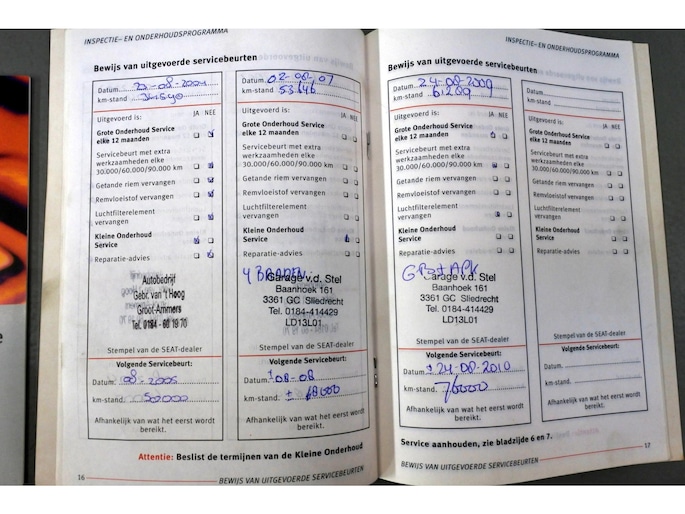 INSPECTIE- EN ONDERHOUDSPROGRAMMA
Bewijs van uitgevoerde servicebeurten
Datum
km-stand
Uitgevoerd is: JA NEE
Grote Onderhoud Service
elke 12 maanden
Servicebeurt met extra
werkzaamheden elke
30.000/60.000/90.000 km
Getande riem vervangen
Remvloeistof vervangen
Luchtfilterelement
vervangen
Kleine Onderhoud
Service
Reparatie-advies
Autobedrijf
Gebr. van 't Hoog
Groot-Ammers
Tel. 0184 - 60 19 70
Stempel van de SEAT-dealer
Volgende Servicebeurt:
Datum: 08-2005
km-stand. 50000
Afhankelijk van wat het eerst wordt
bereikt.
Datum. 02-08-07
km-stand. 53646
Uitgevoerd is: JA NEE
Grote Onderhoud Service
elke 12 maanden
Servicebeurt met extra
werkzaamheden elke
30.000/60.000/90.000 km
Getande riem vervangen
Remvloeistof vervangen
Luchtfilterelement
vervangen
Kleine Onderhoud
Service
Reparatie-advies
4 BANDEN
Garage v.d. Stel
Baanhoek 161
3361 GC Sliedrecht
Tel. 0184-414429
LD13L01
Stempel van de SEAT-dealer
Volgende Servicebeurt:
Datum: 08-08
km-stand. ± 68000
Afhankelijk van wat het eerst wordt
bereikt.
Attentie: Beslist de termijnen van de Kleine Onderhoud
16 BEWIJS VAN UITGEVOERDE SERVICEBEURTEN
INSPECTIE- EN ONDERHOUDSPROGRAMMA
Bewijs van uitgevoerde servicebeurten
Datum. 24-08-2009
km-stand. 61209
Uitgevoerd is: JA NEE
Grote Onderhoud Service
elke 12 maanden
Servicebeurt met extra
werkzaamheden elke
30.000/60.000/90.000 km
Getande riem vervangen
Remvloeistof vervangen
Luchtfilterelement
vervangen
Kleine Onderhoud
Service
Reparatie-advies
GB+APK
Garage v.d. Stel
Baanhoek 161
3361 GC Sliedrecht
Tel. 0184-414429
LD13L01
Stempel van de SEAT-dealer
Volgende Servicebeurt:
Datum: 24-08-2010
km-stand. 76000
Afhankelijk van wat het eerst wordt
bereikt.
Datum.
km-stand.
Uitgevoerd is: JA NEE
Grote Onderhoud Service
elke 12 maanden
Servicebeurt met extra
werkzaamheden elke
30.000/60.000/90.000 km
Getande riem vervangen
Remvloeistof vervangen
Luchtfilterelement
vervangen
Kleine Onderhoud
Service
Reparatie-advies
Stempel van de SEAT-dealer
Volgende Servicebeurt:
Datum:
km-stand.
Afhankelijk van wat het eerst wordt
bereikt.
Service aanhouden, zie bladzijde 6 en 7.
BEWIJS VAN UITGEVOERDE SERVICEBEURTEN 17